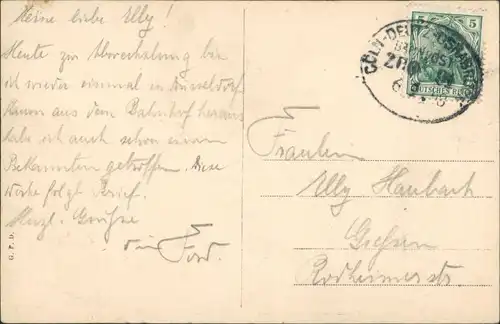 Meine liebe Elly!
Heute zur Abwechslung bin
ich wieder einmal in Düsseldorf
Kaum aus dem Bahnhof heraus
habe ich auch schon einen
Bekannten getroffen. Diese
Woche folgt Brief.
Herzl. Grüsse
dein
G. F. D.
5 5
CÖLN-DEUTZ
BAHNPOST
ZUG
DEUTSCHES REICH
Fräulein
Elly Haubach
Giessen
Rodheimerstr.